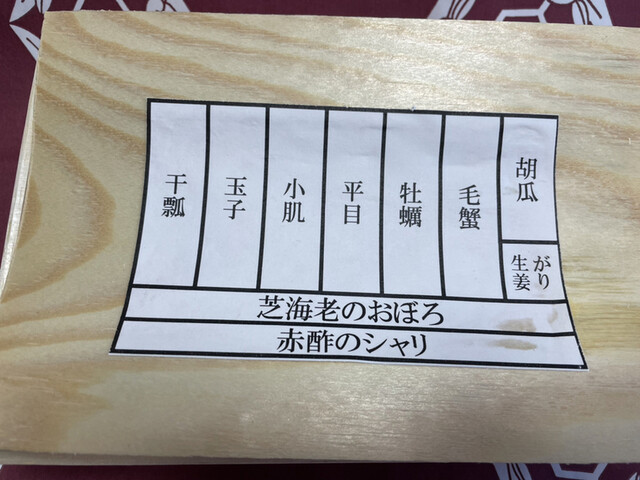 胡瓜
がり
生姜
毛蟹
牡蠣
平目
小肌
玉子
干瓢
芝海老のおぼろ
赤酢のシャリ